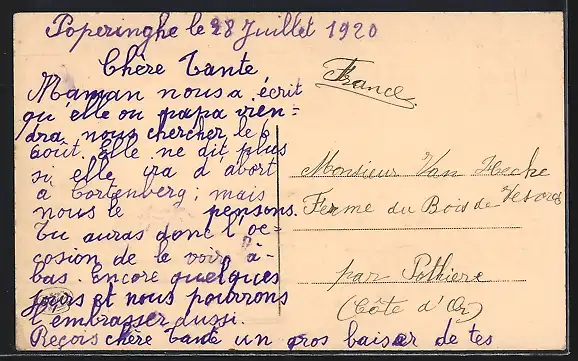 Poperinghe le 28 Juillet 1920
Chère Tante
Maman nous a écrit
qu'elle ou papa vien-
dra nous chercher le 6
août. Elle ne dit plus
si elle ira d'abort
à Cortenberg; mais
nous le pensons.
Tu auras donc l'oc-
casion de la voir à-
bas. Encore quelques
jours et nous pourrons
l'embrasser aussi.
Reçois chère tante un gros baiser de tes
France
Monsieur Van Hecke
Ferme du Bois de
par Pothière
(Côte d'Or)